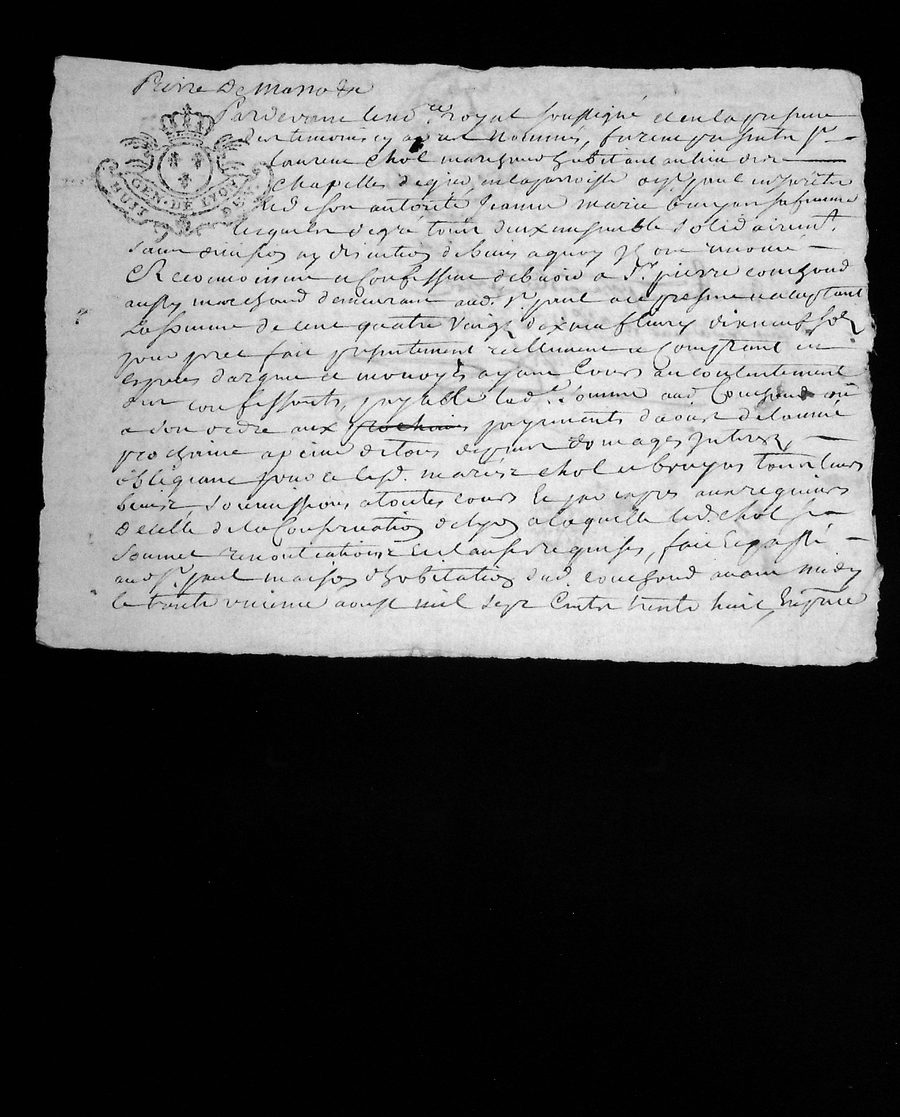 Pierre de
GEN. DE LYON
HUIT DEN.
Pardevant le no.re royal soussigné et en la presence
des temoins cy apres nommés, furent presents sr
Laurent Chol marchand habitant au lieu de
Chapelles de en la paroisse de st paul en
et de son autorité Jeanne Marie Bruyas sa femme
lesquels de gré tous deux ensemble solidairemt
sans division ny discution de biens a quoy ils ont renoncé
Reconnoissent et Confessent debvoir a Sr pierre couchoud
aussy marchand demeurant aud. st paul acceptant
La somme de cent quatre vingt dix neuf livres dix neuf sols
pour pret fait presentement reellement et Comptant en
especes dargent et monoyes ayant Cours au contentement
des confessants, payable lad.e somme aud. Couchoud ou
a son ordre aux prochains payements daoust de lannée
prochaine a peine de tous depens domages Interets,
obligeant pour ce lesd. mariez chol et bruyas tous leurs
biens soumissions a toutes cours Et par expres aux rigueurs
de celle de la Conservation de lyon a laquelle led. chol se
soumet renonciations Et clauses requises, fait Et passé
aud. st. paul maison dhabitation dud couchoud avant midy
le trente unieme aoust mil sept Cents trente huit, En presence